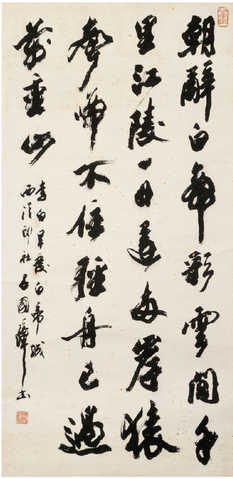 朝辭白帝彩雲間千
里江陵一日還兩岸猿
聲啼不住輕舟已過
萬重山
李白早發白帝城
西泠印社呂國璋書